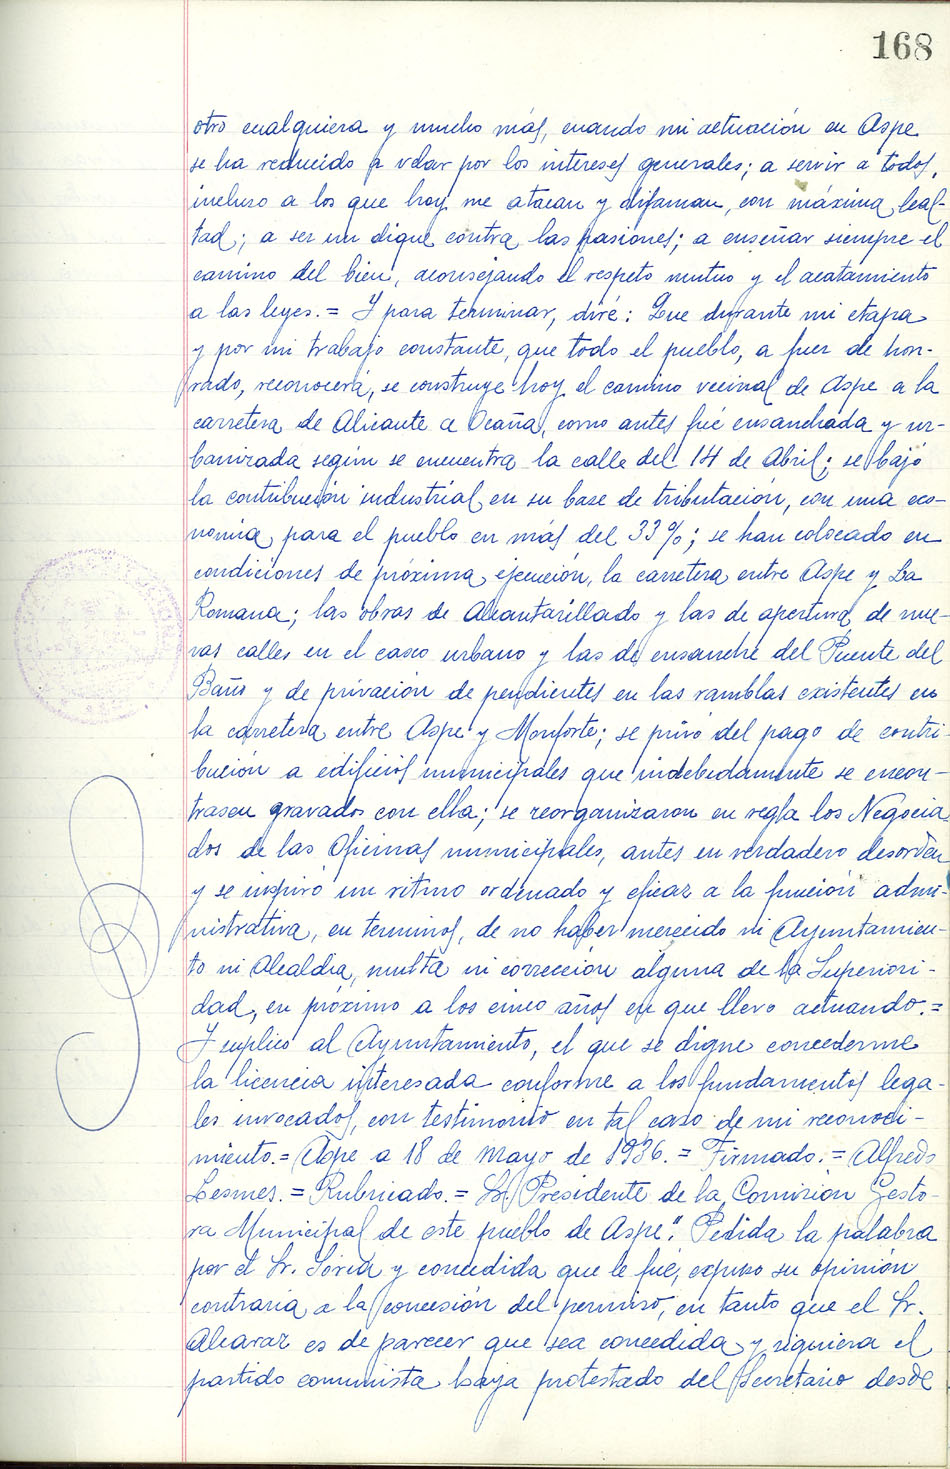 168
otro cualquiera y mucho más, cuando mi actuación en Aspe
se ha reducido a velar por los intereses generales; a servir a todos,
incluso a los que hoy me atacan y difaman, con máxima leal-
tad; a ser un dique contra las pasiones; a enseñar siempre el
camino del bien, aconsejando el respeto mutuo y el acatamiento
a las leyes.= Y para terminar, diré: Que durante mi etapa
y por mi trabajo constante, que todo el pueblo, a fuer de hon-
rado, reconocerá, se construye hoy el camino vecinal de Aspe a la
carretera de Alicante a Ocaña, como antes fué ensanchada y ur-
banizada según se encuentra la calle del 14 de Abril; se bajó
la contribución industrial en su base de tributación, con una eco-
nomia para el pueblo en más del 33%; se han colocado en
condiciones de próxima ejecución, la carretera entre Aspe y La
Romana; las obras de Alcantarillado y las de apertura de nue-
vas calles en el casco urbano y las de ensanche del Puente del
Baño y de privación de pendientes en las ramblas existentes en
la carretera entre Aspe y Monforte; se privó del pago de contri-
bución a edificios municipales que indebidamente se encon-
trasen gravados con ella; se reorganizaron en regla los Negocia
dos de las Oficinas municipales, antes en verdadero desorden
y se inspiró un ritmo ordenado y eficaz a la función admi-
nistrativa, en terminos, de no haber merecido ni Ayuntamien-
to ni Alcaldia, multa ni corrección alguna de la Superiori-
dad, en próximo a los cinco años en que llevo actuando.=
Y suplico al Ayuntamiento, el que se digne concederme
la licencia interesada conforme a los fundamentos lega-
les invocados, con testimonio en tal caso de mi reconoci-
miento.= Aspe a 18 de Mayo de 1936.= Firmado.= Alfredo
Lesmes.= Rubricado.= Sr. Presidente de la Comisión Gesto-
ra Municipal de este pueblo de Aspe". Pedida la palabra
por el Sr. Soria y concedida que le fué, expuso su opinión
contraria a la concesión del permiso, en tanto que el Sr.
Alcaraz es de parecer que sea concedida y siquiera el
partido comunista haya protestado del Secretario desde